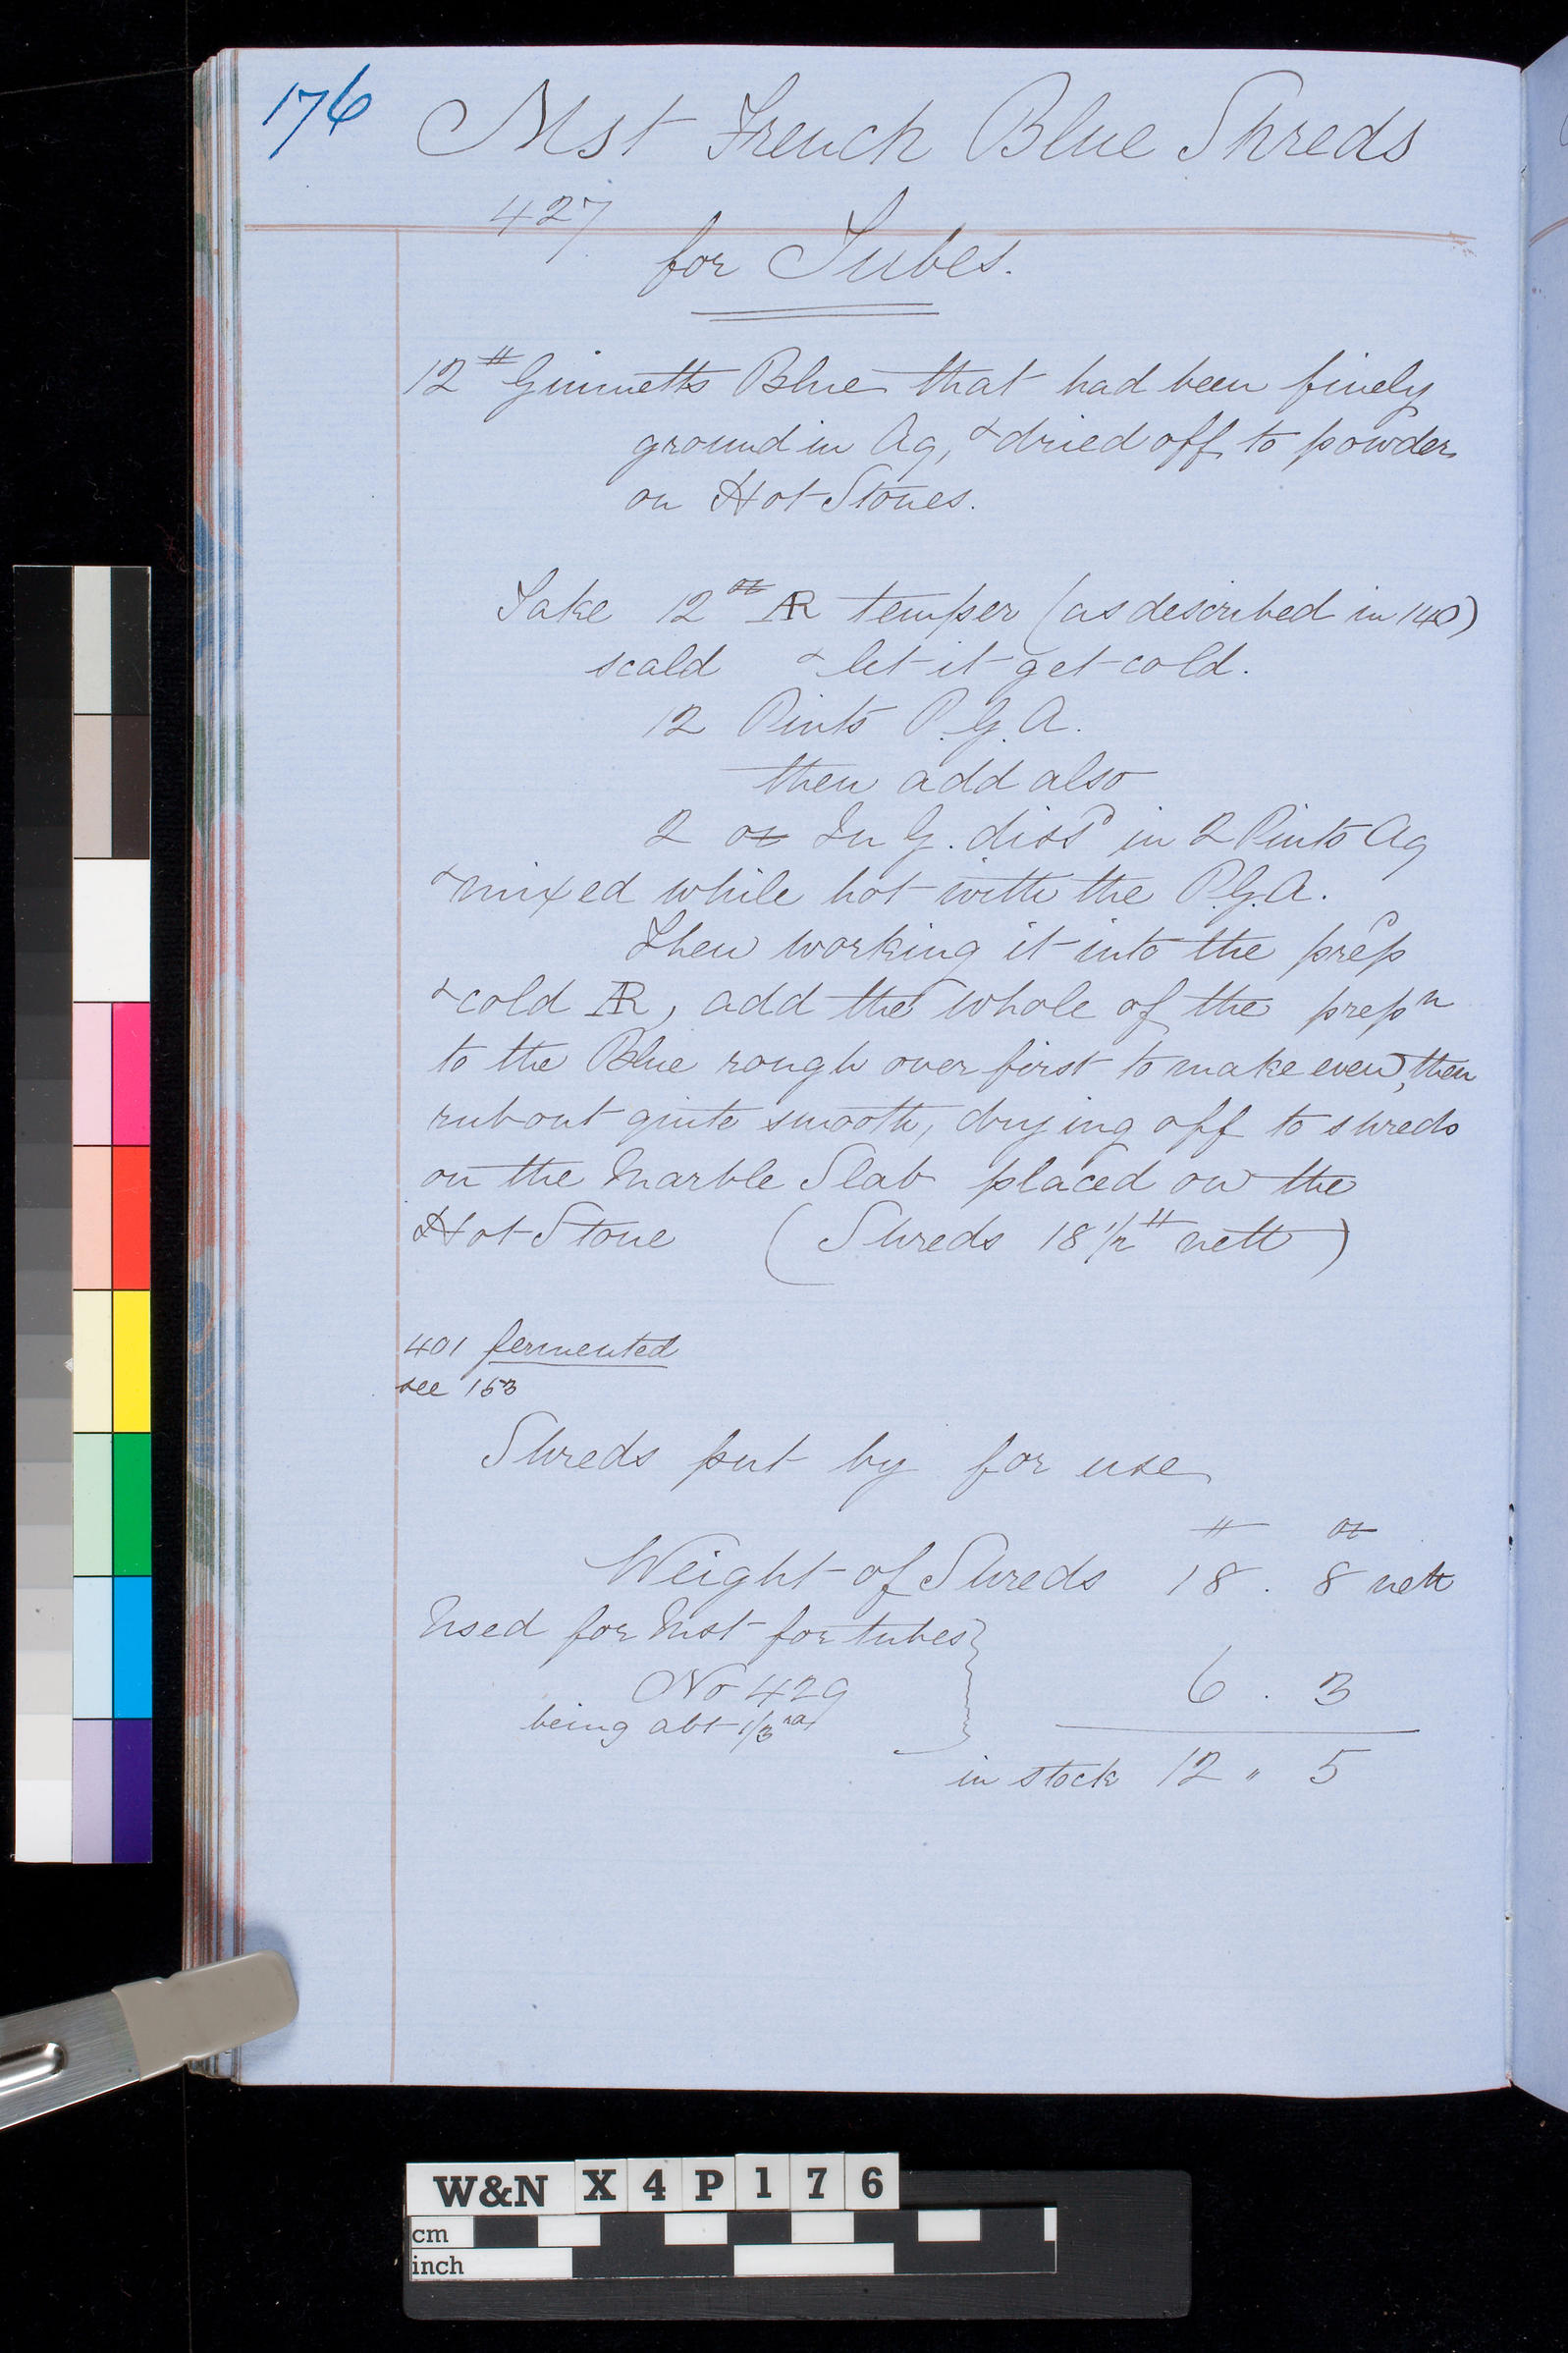 176 Mst French Blue Shreds
427
for Tubes.
12 # Gimmetts Blue that had been finely
ground in Aq, & dried off to powder
on Hot Stones.
Take 12 oz AR temper (as described in 140)
scald & let it get cold.
12 Pints P.G.A.
then add also
2 oz In G. dissd in 2 Pints Aq
& mixed while hot with the P.G.A.
Then working it into the prepd
& cold AR, add the whole of the prepn
to the Blue rough over first to make even, then
rub out quite smooth, drying off to shreds
on the Marble Slab placed on the
Hot Stone (Shreds 18 1/2 # nett)
401 fermented
see 153
Shreds put by for use
# oz
Weight of Shreds 18 . 8 nett
Used for Mst for tubes
No 429
6 . 3
being abt 1/3rd
in stock 12 " 5
W&N X4P176
cm
inch